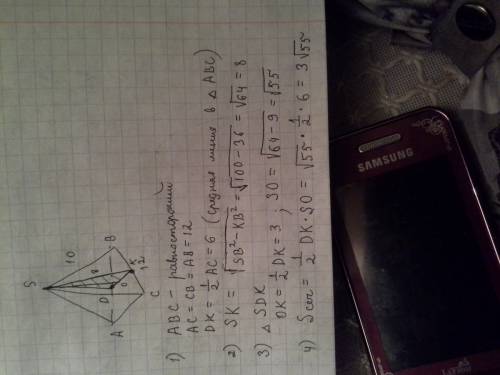 S
10
8
D
O
K
A
B
12
C
1) ABC - равносторонний
AC = CB = AB = 12
DK = 1/2 AC = 6 (средняя линия в △ ABC)
2) SK = √(SB² - KB²) = √(100 - 36) = √64 = 8
3) △ SDK
OK = 1/2 DK = 3 ; SO = √(64 - 9) = √55
4) Sсеч = 1/2 DK · SO = √55 · 1/2 · 6 = 3√55
SAMSUNG